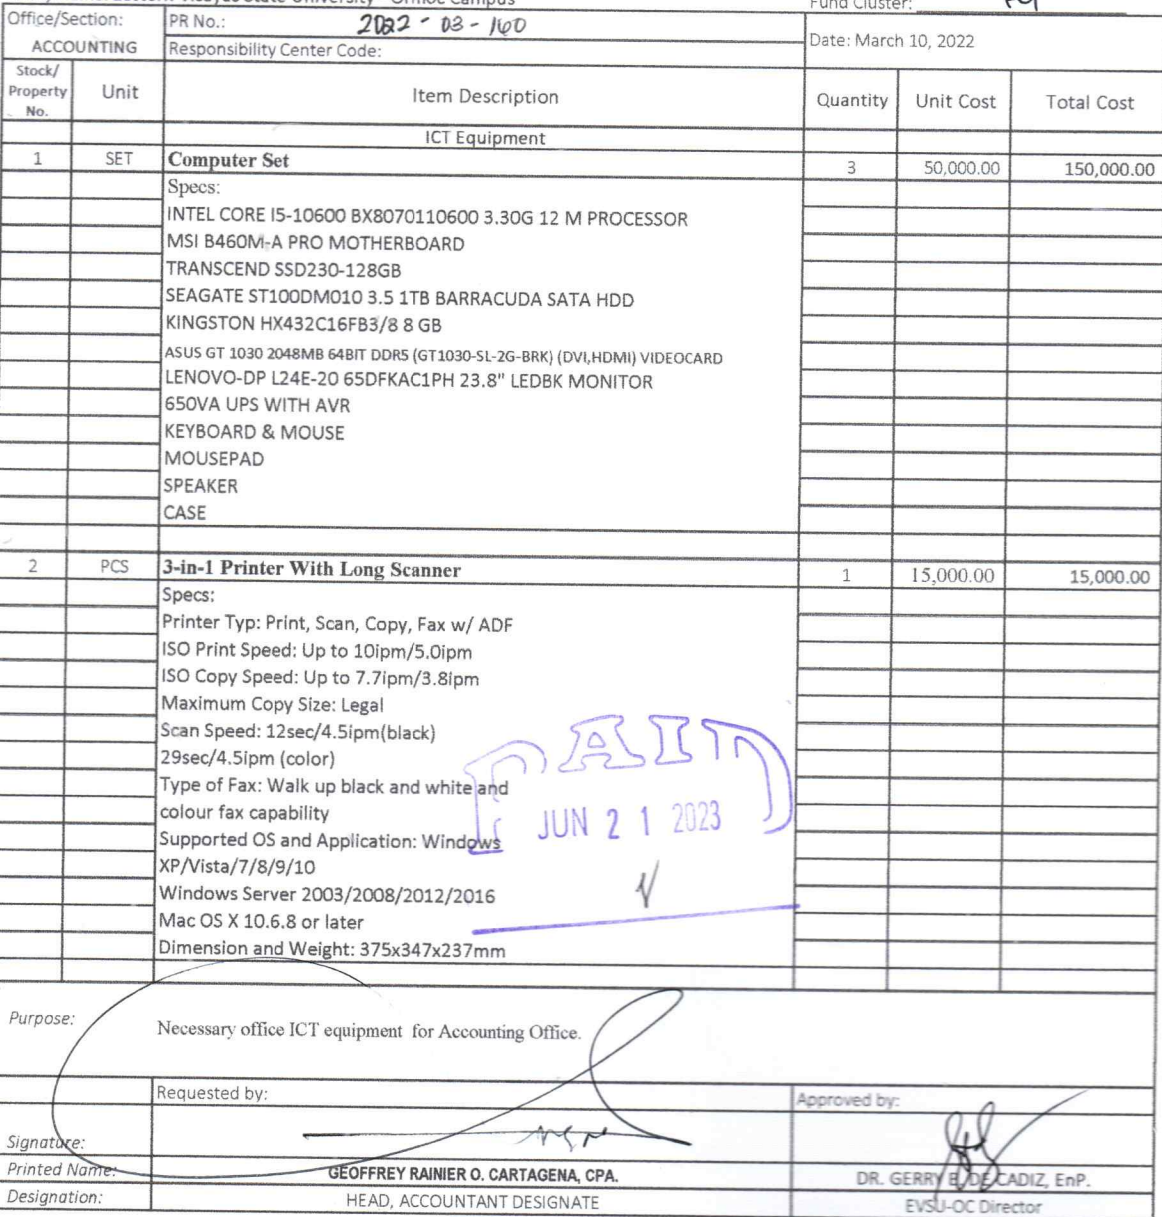 Visayas State University - Ormoc Campus
Fund Cluster:
Office/Section:
ACCOUNTING
PR No.: 2022-03-160
Responsibility Center Code:
Date: March 10, 2022
Stock/ Property No. Unit Item Description Quantity Unit Cost Total Cost
ICT Equipment
1 SET Computer Set 3 50,000.00 150,000.00
Specs:
INTEL CORE I5-10600 BX8070110600 3.30G 12 M PROCESSOR
MSI B460M-A PRO MOTHERBOARD
TRANSCEND SSD230-128GB
SEAGATE ST100DM010 3.5 1TB BARRACUDA SATA HDD
KINGSTON HX432C16FB3/8 8 GB
ASUS GT 1030 2048MB 64BIT DDR5 (GT1030-SL-2G-BRK) (DVI,HDMI) VIDEOCARD
LENOVO-DP L24E-20 65DFKAC1PH 23.8" LEDBK MONITOR
650VA UPS WITH AVR
KEYBOARD & MOUSE
MOUSEPAD
SPEAKER
CASE
2 PCS 3-in-1 Printer With Long Scanner 1 15,000.00 15,000.00
Specs:
Printer Typ: Print, Scan, Copy, Fax w/ ADF
ISO Print Speed: Up to 10ipm/5.0ipm
ISO Copy Speed: Up to 7.7ipm/3.8ipm
Maximum Copy Size: Legal
Scan Speed: 12sec/4.5ipm(black)
29sec/4.5ipm (color)
Type of Fax: Walk up black and white and
colour fax capability
Supported OS and Application: Windows
XP/Vista/7/8/9/10
Windows Server 2003/2008/2012/2016
Mac OS X 10.6.8 or later
Dimension and Weight: 375x347x237mm
PAID
JUN 21 2023
Purpose: Necessary office ICT equipment for Accounting Office.
Requested by: Approved by:
Signature:
Printed Name: GEOFFREY RAINIER O. CARTAGENA, CPA. DR. GERRY B. DE CADIZ, EnP.
Designation: HEAD, ACCOUNTANT DESIGNATE EVSU-OC Director